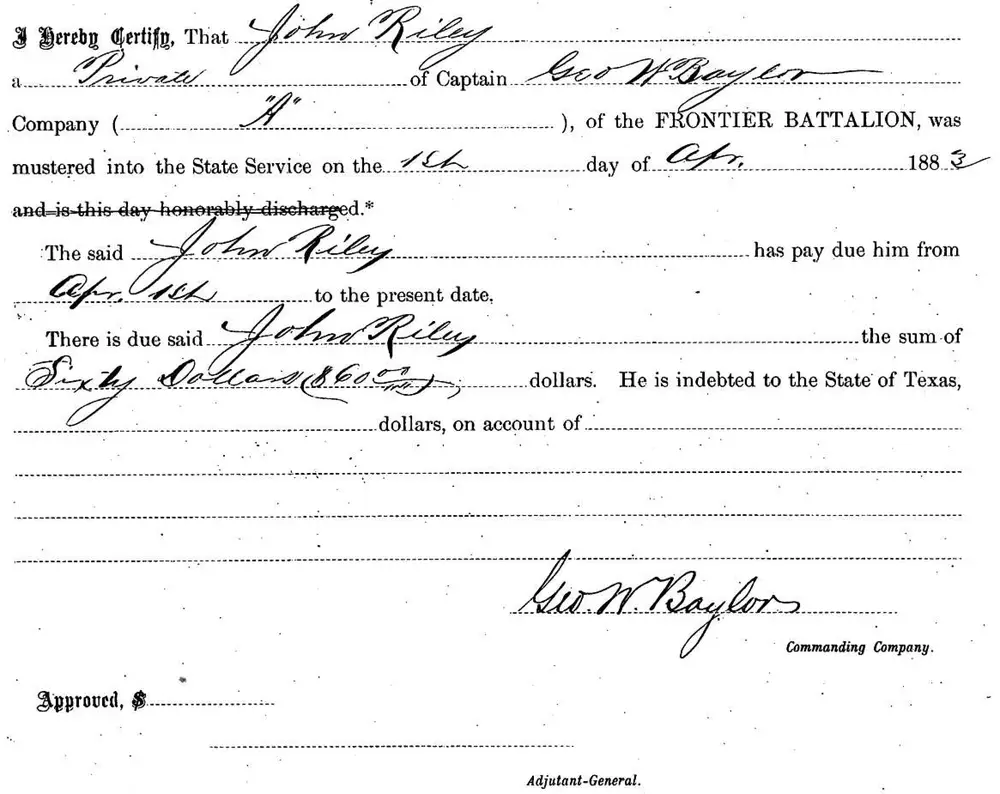 I Hereby Certify, That John Riley
a Private of Captain Geo W Baylor
Company ( "A" ), of the FRONTIER BATTALION, was
mustered into the State Service on the 1st day of Apr. 1883
and is this day honorably discharged.*
The said John Riley has pay due him from
Apr. 1st to the present date.
There is due said John Riley the sum of
Sixty Dollars ($60 00/100), dollars. He is indebted to the State of Texas,
dollars, on account of
Geo. W. Baylor
Commanding Company.
Approved, $
Adjutant-General.